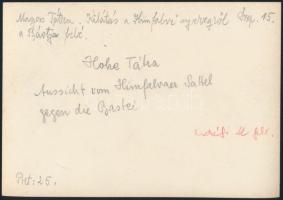 Magas Tátra. Kilátás a Hunfalvi nyeregről
a Bástya felé.
15.
Hohe Tátra
Aussicht vom Hunfalvaer Sattel
gegen die Bastei
M felv.
Prt: 25.